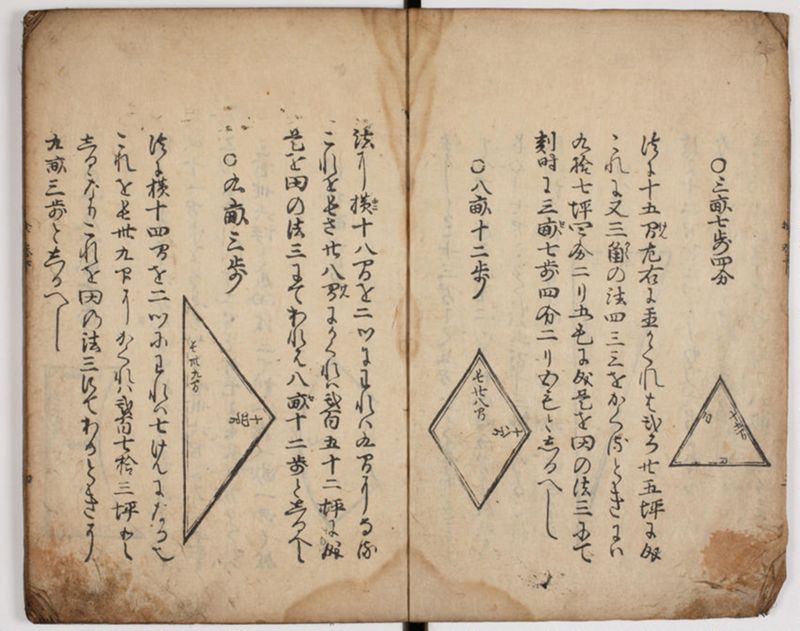 ○三畝七歩四分
法に十五間左右にかくれは弐百廿五坪に成
これに又三角の法四三三をかくるときには
九拾七坪四分二リ五毛に成是を田の法三にて
割時は三畝七歩四分二リ五毛としるへし
十五間
○八畝十二歩
長廿八間
十八間
法に横十八間を二ツにわれは九間になる
これを長さ廿八間にかくれは貳百五十二坪に成
是を田の法三にてわれは八畝十二歩としるへし
○九畝三歩
長卅九間
十四間
法に横十四間を二ツにわれは七けんになる也
これを長卅九間にかくれは貳百七拾三坪と
しるなりこれを田の法三にてわるときは
九畝三歩としるへし